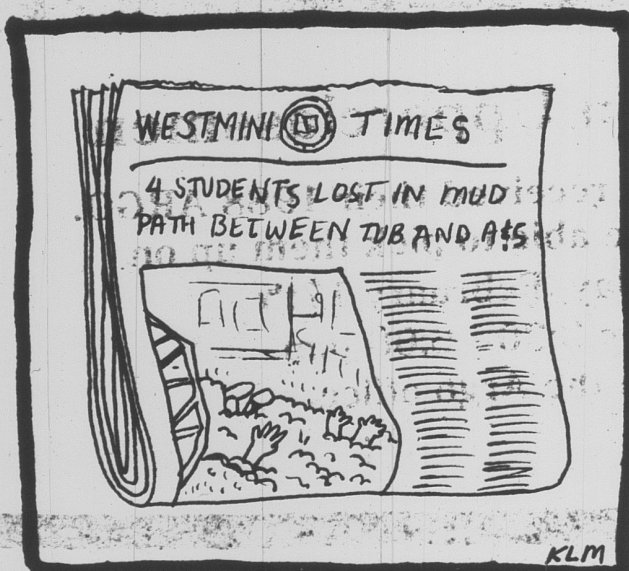 WESTMINI TIMES
4 STUDENTS LOST IN MUD
PATH BETWEEN TUB AND A&S
KLM